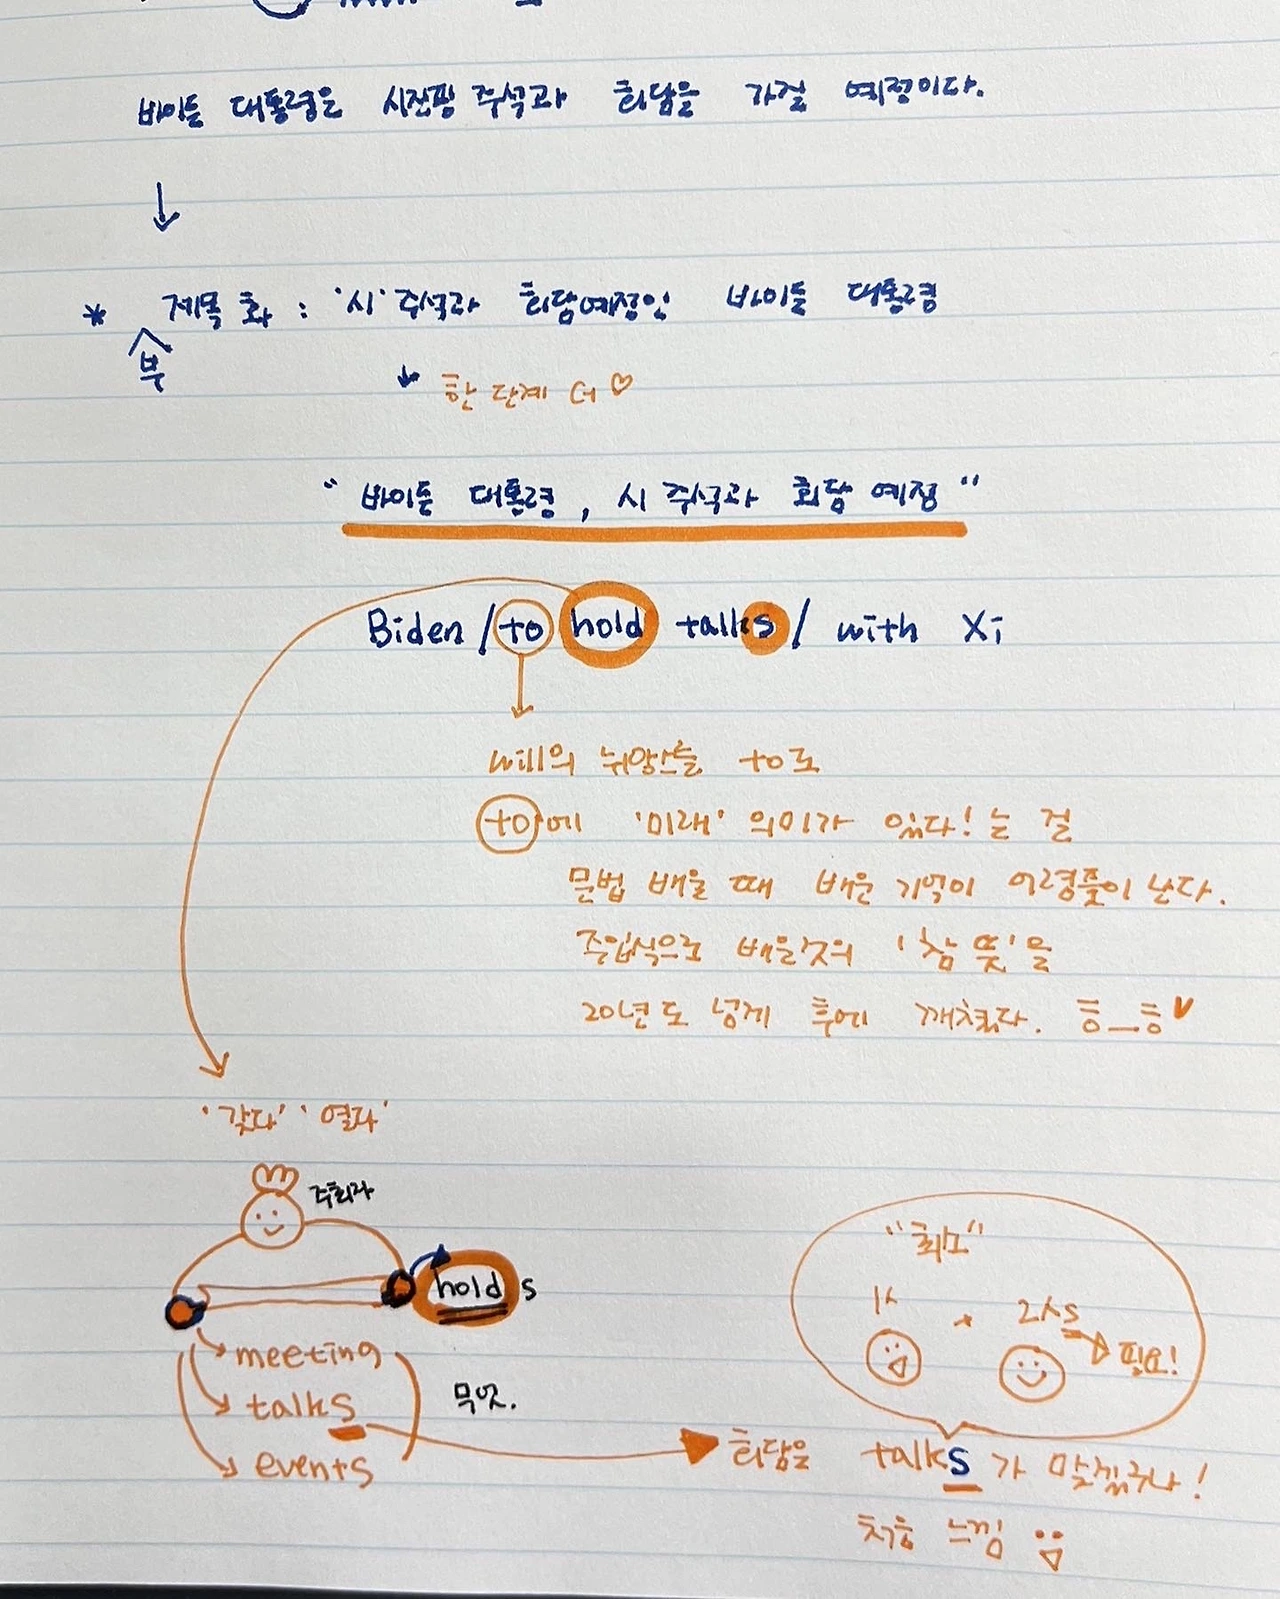 바이든 대통령은 시진핑 주석과 회담을 가질 예정이다.
* 제목화 : '시' 주석과 회담예정인 바이든 대통령
부
한 단계 더 ♡
" 바이든 대통령, 시 주석과 회담 예정 "
Biden / to hold talks / with Xi
will의 뉘앙스를 to로
to에 '미래' 의미가 있다! 는 걸
문법 배울 때 배운 기억이 어렴풋이 난다.
주입식으로 배운것의 '참 뜻'을
20년도 넘게 후에 깨쳤다. ㅎ_ㅎ
'갖다' '열다'
주최자
holds
meeting
talks
events
무엇.
"최소"
1人 + 2人s
필요!
회담은 talks가 맞겠구나!
처음 느낌